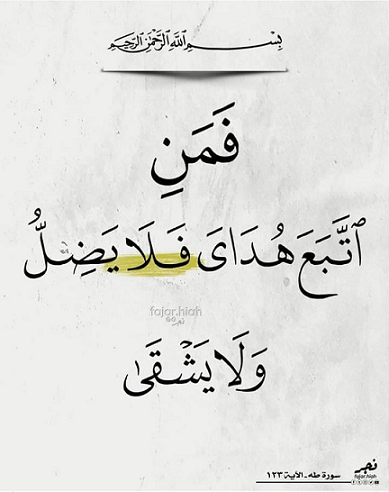 بِسْمِ ٱللَّهِ ٱلرَّحْمَٰنِ ٱلرَّحِيمِ
فَمَنِ
ٱتَّبَعَ هُدَاىَ فَلَا يَضِلُّ
fajar.hiah
وَلَا يَشْقَىٰ
فجر
fajar.hiah
سورة طه - الآية ١٢٣